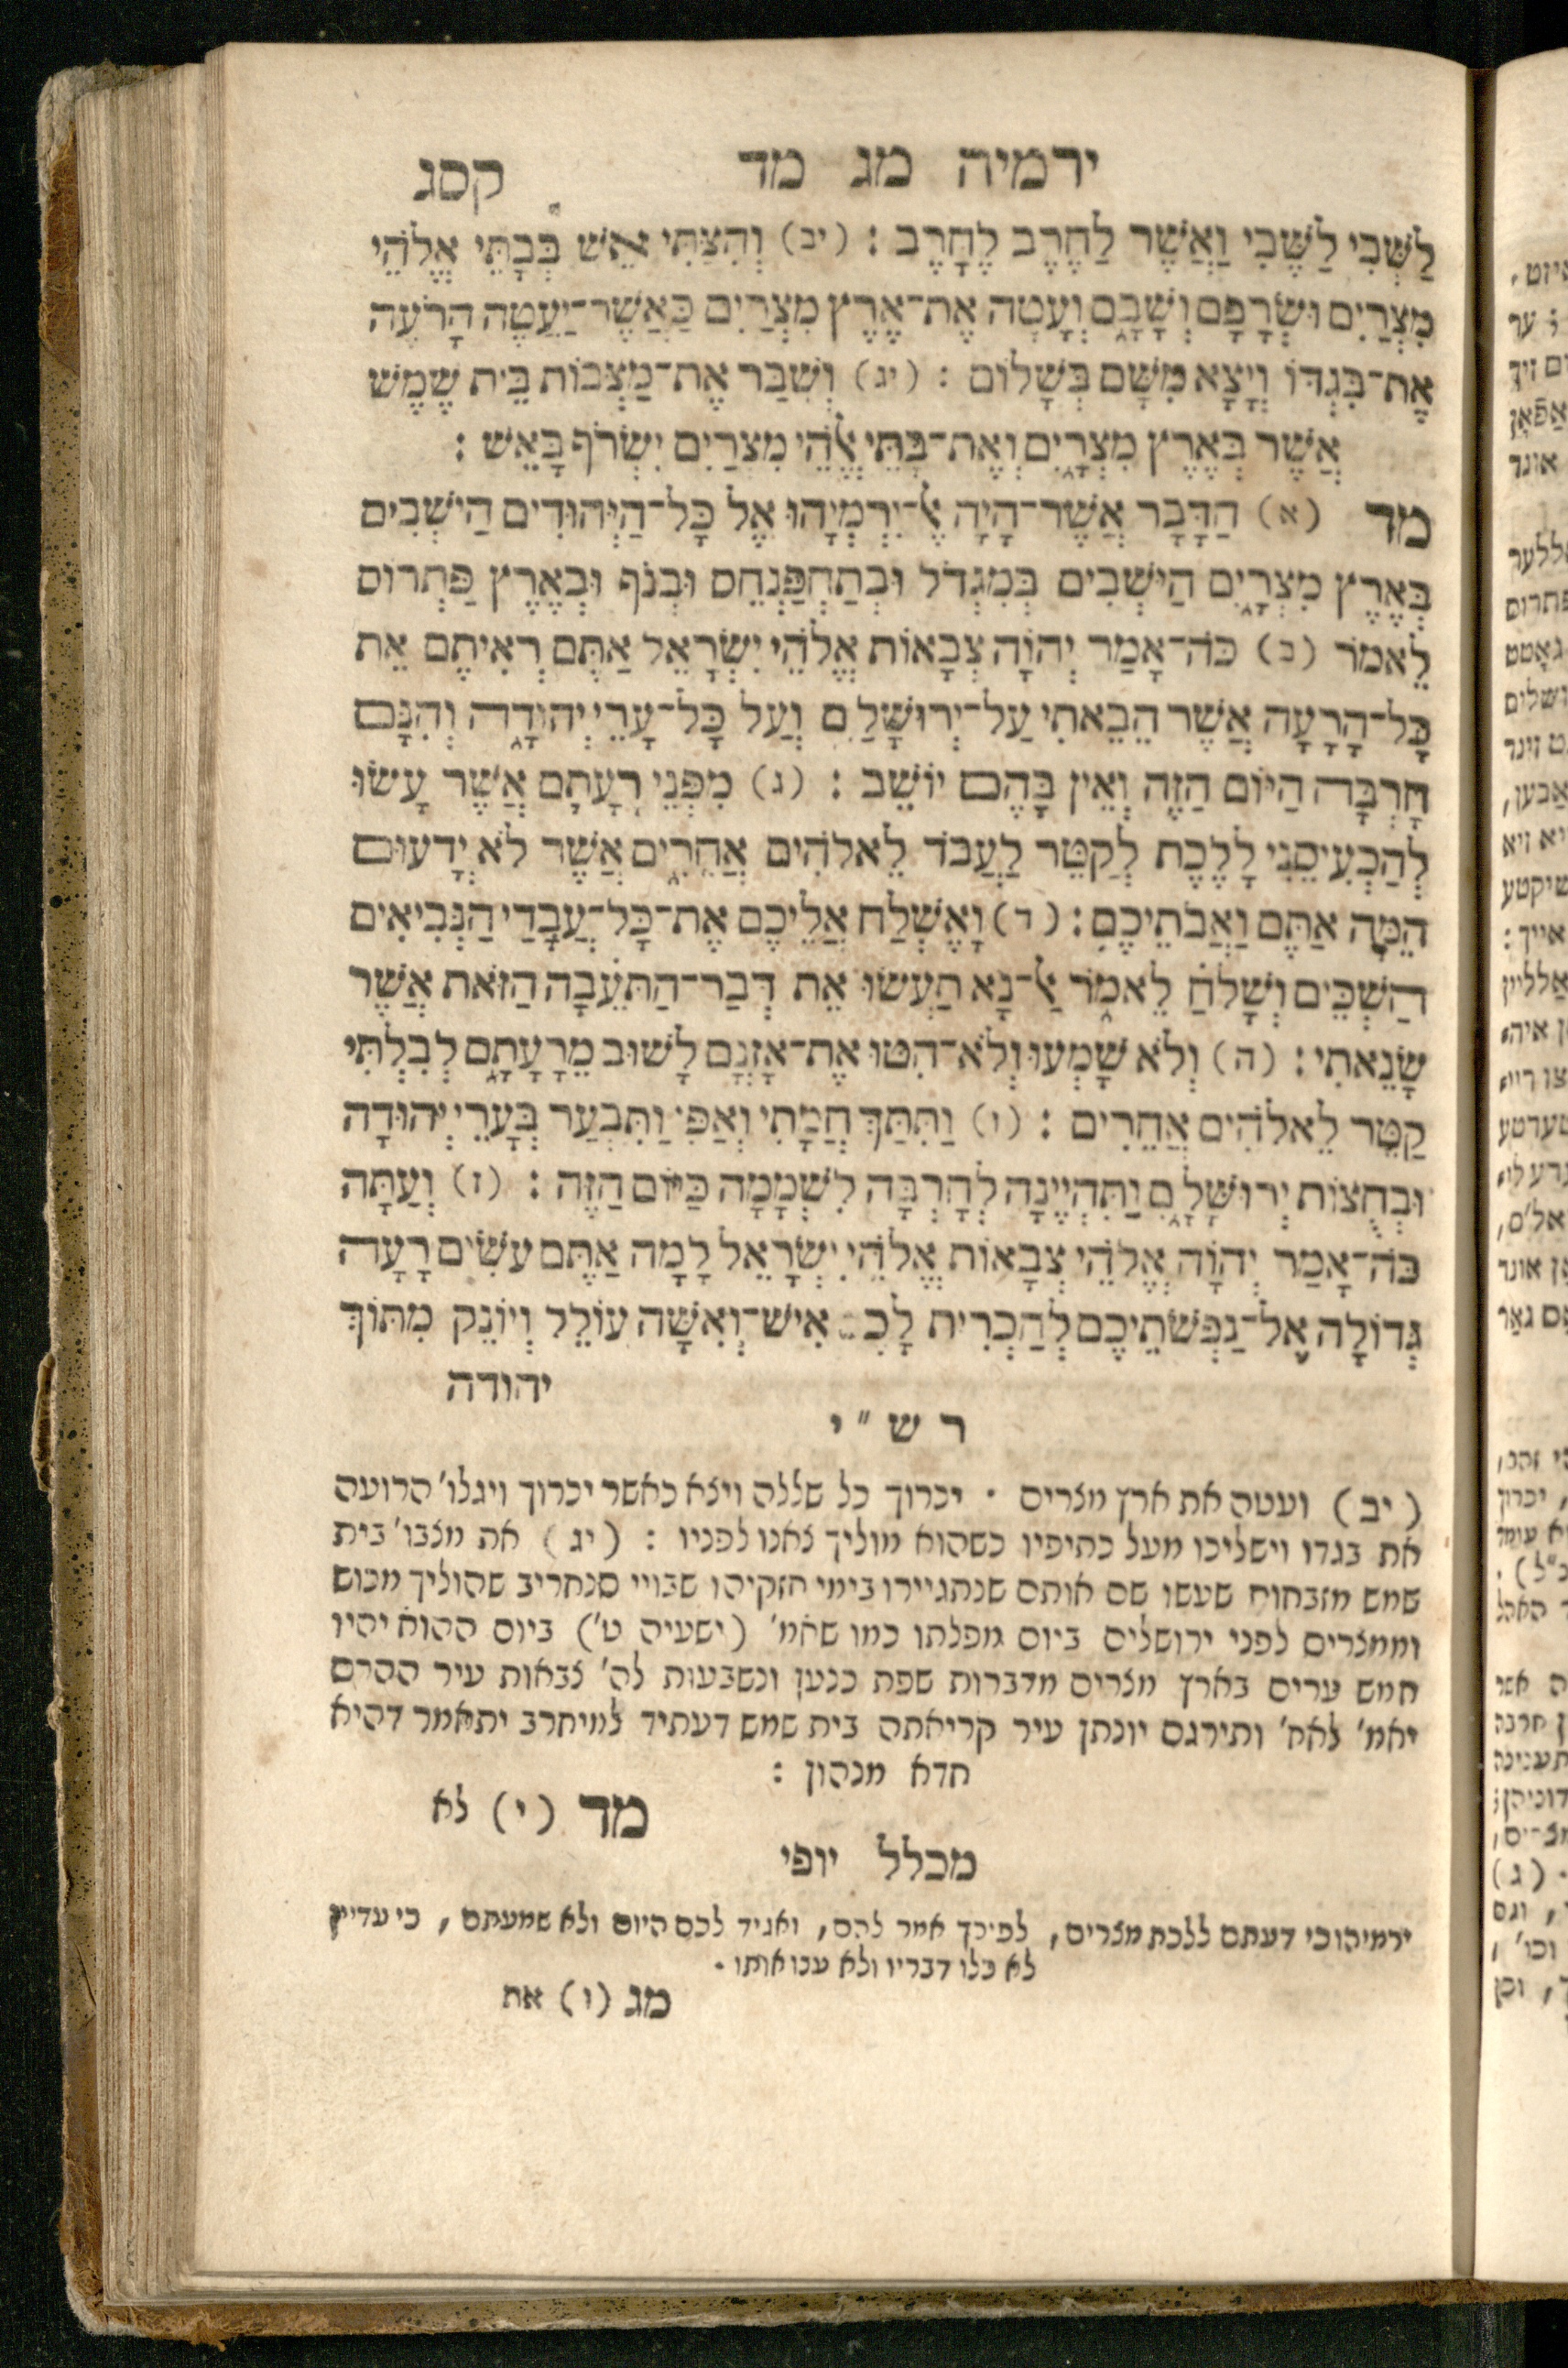 ירמיה מג מד קסג
לַשְּׁבִי לַשֶּׁבִי וַאֲשֶׁר לַחֶרֶב לֶחָרֶב : (יב) וְהִצַּתִּי אֵשׁ בְּבָתֵּי אֱלֹהֵי
מִצְרַיִם וּשְׂרָפָם וְשָׁבָם וְעָטָה אֶת־אֶרֶץ מִצְרַיִם כַּאֲשֶׁר־יַעְטֶה הָרֹעֶה
אֶת־בִּגְדוֹ וְיָצָא מִשָּׁם בְּשָׁלוֹם : (יג) וְשִׁבַּר אֶת־מַצְּבוֹת בֵּית שֶׁמֶשׁ
אֲשֶׁר בְּאֶרֶץ מִצְרָיִם וְאֶת־בָּתֵּי אֱלֹהֵי מִצְרַיִם יִשְׂרֹף בָּאֵשׁ :
מד (א) הַדָּבָר אֲשֶׁר־הָיָה אֶל־יִרְמְיָהוּ אֶל כָּל־הַיְּהוּדִים הַיֹּשְׁבִים
בְּאֶרֶץ מִצְרָיִם הַיֹּשְׁבִים בְּמִגְדֹּל וּבְתַחְפַּנְחֵס וּבְנֹף וּבְאֶרֶץ פַּתְרוֹס
לֵאמֹר (ב) כֹּה־אָמַר יְהוָֹה צְבָאוֹת אֱלֹהֵי יִשְׂרָאֵל אַתֶּם רְאִיתֶם אֵת
כָּל־הָרָעָה אֲשֶׁר הֵבֵאתִי עַל־יְרוּשָׁלַ‍ִם וְעַל כָּל־עָרֵי יְהוּדָה וְהִנָּם
חָרְבָּה הַיּוֹם הַזֶּה וְאֵין בָּהֶם יוֹשֵׁב : (ג) מִפְּנֵי רָעָתָם אֲשֶׁר עָשׂוּ
לְהַכְעִיסֵנִי לָלֶכֶת לְקַטֵּר לַעֲבֹד לֵאלֹהִים אֲחֵרִים אֲשֶׁר לֹא יְדָעוּם
הֵמָּה אַתֶּם וַאֲבֹתֵיכֶם : (ד) וָאֶשְׁלַח אֲלֵיכֶם אֶת־כָּל־עֲבָדַי הַנְּבִיאִים
הַשְׁכֵּים וְשָׁלֹחַ לֵאמֹר אַל־נָא תַעֲשׂוּ אֵת דְּבַר־הַתֹּעֵבָה הַזֹּאת אֲשֶׁר
שָׂנֵאתִי : (ה) וְלֹא שָׁמְעוּ וְלֹא־הִטּוּ אֶת־אָזְנָם לָשׁוּב מֵרָעָתָם לְבִלְתִּי
קַטֵּר לֵאלֹהִים אֲחֵרִים : (ו) וַתִּתַּךְ חֲמָתִי וְאַפִּי וַתִּבְעַר בְּעָרֵי יְהוּדָה
וּבְחֻצוֹת יְרוּשָׁלָ‍ִם וַתִּהְיֶינָה לְחָרְבָּה לִשְׁמָמָה כַּיּוֹם הַזֶּה : (ז) וְעַתָּה
כֹּה־אָמַר יְהוָֹה אֱלֹהֵי צְבָאוֹת אֱלֹהֵי יִשְׂרָאֵל לָמָה אַתֶּם עֹשִׂים רָעָה
גְדוֹלָה אֶל־נַפְשֹׁתֵיכֶם לְהַכְרִית לָכֶם אִישׁ־וְאִשָּׁה עוֹלֵל וְיוֹנֵק מִתּוֹךְ
יהודה
ר ש " י
(יב) ועטה את ארץ מצרים . יכרוך כל שללה ויצא כאשר יכרוך ויגלו' הרועה
את בגדו וישליכו מעל כתיפיו כשהוא מוליך צאנו לפניו : (יג) את מצבו' בית
שמש מזבחות שעשו שם אותם שנתגיירו בימי חזקיהו שבויי סנחריב שהוליך מכוש
וממצרים לפני ירושלים ביום מפלתו כמו שאמ' (ישעיה ט') ביום ההוא יהיו
חמש ערים בארץ מצרים מדברות שפת כנען ונשבעות לה' צבאות עיר ההרם
יאמ' לאח' ותירגם יונתן עיר קריאתה בית שמש דעתיד למיחרב יתאמר דהיא
חדא מנהון :
מד (י) לא
מכלל יופי
ירמיהו כי דעתם ללכת מצרים, לפיכך אמר להם, ואגיד לכם היום ולא שמעתם, כי עדיין
לא כלו דבריו ולא ענו אותו .
מג (ו) את